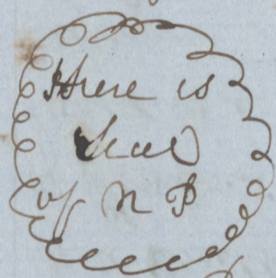 Here is
seal
of N P